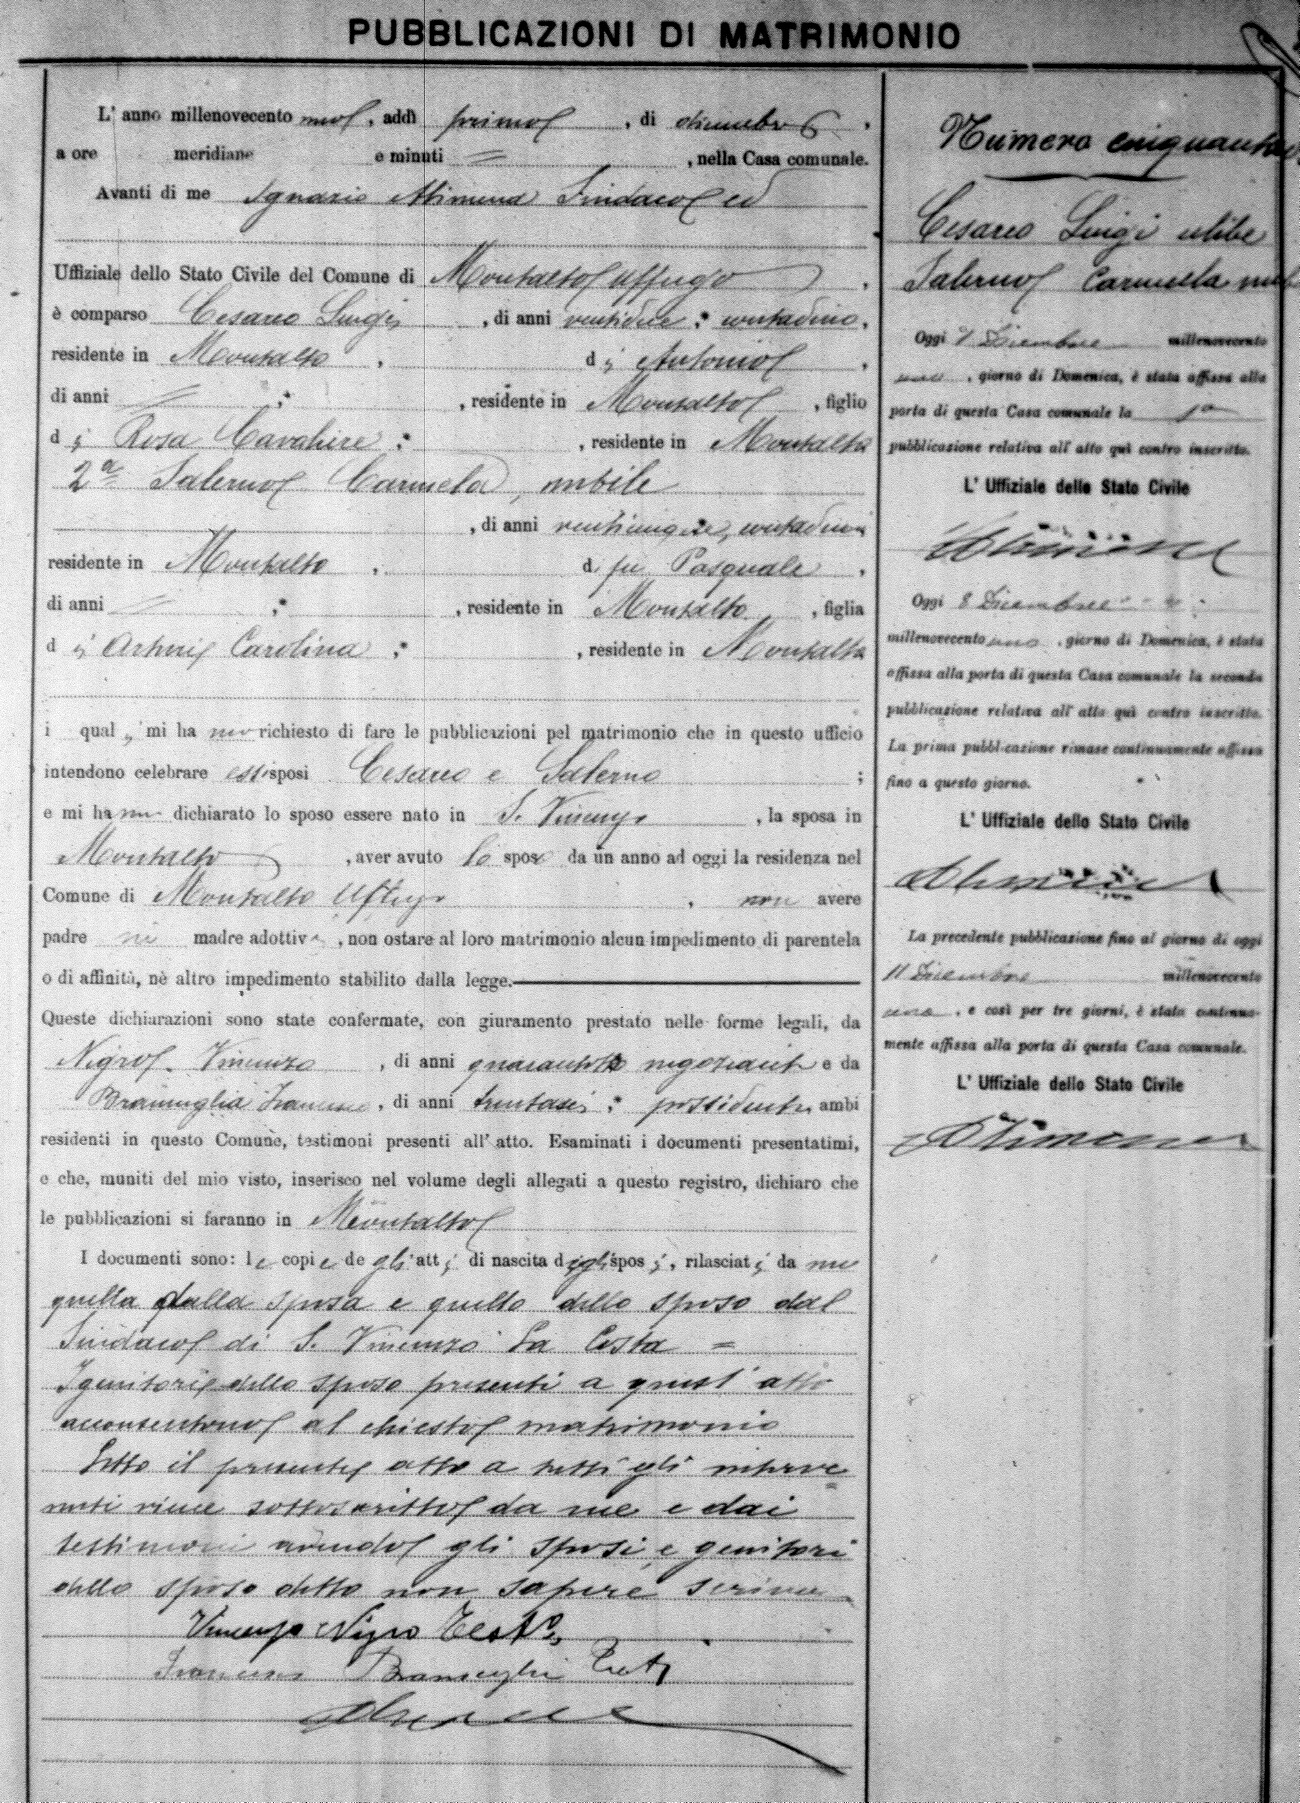 PUBBLICAZIONI DI MATRIMONIO
L' anno millenovecento uno, addì primo, di dicembre,
a ore meridiane e minuti =, nella Casa comunale.
Avanti di me Ignazio Alimena Sindaco ed
Uffiziale dello Stato Civile del Comune di Montalto Uffugo,
è comparso Cesareo Luigi, di anni ventidue, contadino,
residente in Montalto, di Antonio,
di anni =, residente in Montalto, figlio
di Rosa Cavaliere, residente in Montalto
2a Salerno Carmela, nubile
, di anni venticinque, contadina
residente in Montalto, di fu Pasquale,
di anni =, residente in Montalto, figlia
di Carolina, residente in Montalto
i quali mi hanno richiesto di fare le pubblicazioni pel matrimonio che in questo ufficio
intendono celebrare essi sposi Cesareo e Salerno;
e mi hanno dichiarato lo sposo essere nato in S. Vincenzo, la sposa in
Montalto, aver avuto lo sposo da un anno ad oggi la residenza nel
Comune di Montalto Uffugo, non avere
padre nè madre adottiva, non ostare al loro matrimonio alcun impedimento di parentela
o di affinità, nè altro impedimento stabilito dalla legge.
Queste dichiarazioni sono state confermate, con giuramento prestato nelle forme legali, da
Nigro Vincenzo, di anni quarantotto negoziante e da
Bramuglia Francesco, di anni trentasei, possidente, ambi
residenti in questo Comune, testimoni presenti all' atto. Esaminati i documenti presentatimi,
e che, muniti del mio visto, inserisco nel volume degli allegati a questo registro, dichiaro che
le pubblicazioni si faranno in Montalto
I documenti sono: le copie de gli atti di nascita degli sposi, rilasciati da me
quella dalla sposa e quello dello sposo dal
Sindaco di S. Vincenzo La Costa =
I genitori dello sposo presenti a quest' atto
acconsentono al chiesto matrimonio
Letto il presente atto a tutti gli interve
nuti viene sottoscritto da me e dai
testimoni avendo gli sposi e genitori
dello sposo detto non sapere scrivere
Vincenzo Nigro Testo.
Francesco Bramuglia Test
Alimena
Numero
Cesareo Luigi celibe
Salerno Carmela nub
Oggi 1 Dicembre millenovecento
uno, giorno di Domenica, è stata affissa alla
porta di questa Casa comunale la 1a
pubblicazione relativa all' atto quì contro inscritto.
L' Uffiziale dello Stato Civile
Alimena
Oggi 8 Dicembre
millenovecento uno, giorno di Domenica, è stata
affissa alla porta di questa Casa comunale la seconda
pubblicazione relativa all' atto quì contro inscritto.
La prima pubblicazione rimase continuamente affissa
fino a questo giorno.
L' Uffiziale dello Stato Civile
Alimena
La precedente pubblicazione fino al giorno di oggi
11 Dicembre millenovecento
uno, e così per tre giorni, è stata continua-
mente affissa alla porta di questa Casa comunale.
L' Uffiziale dello Stato Civile
Alimena